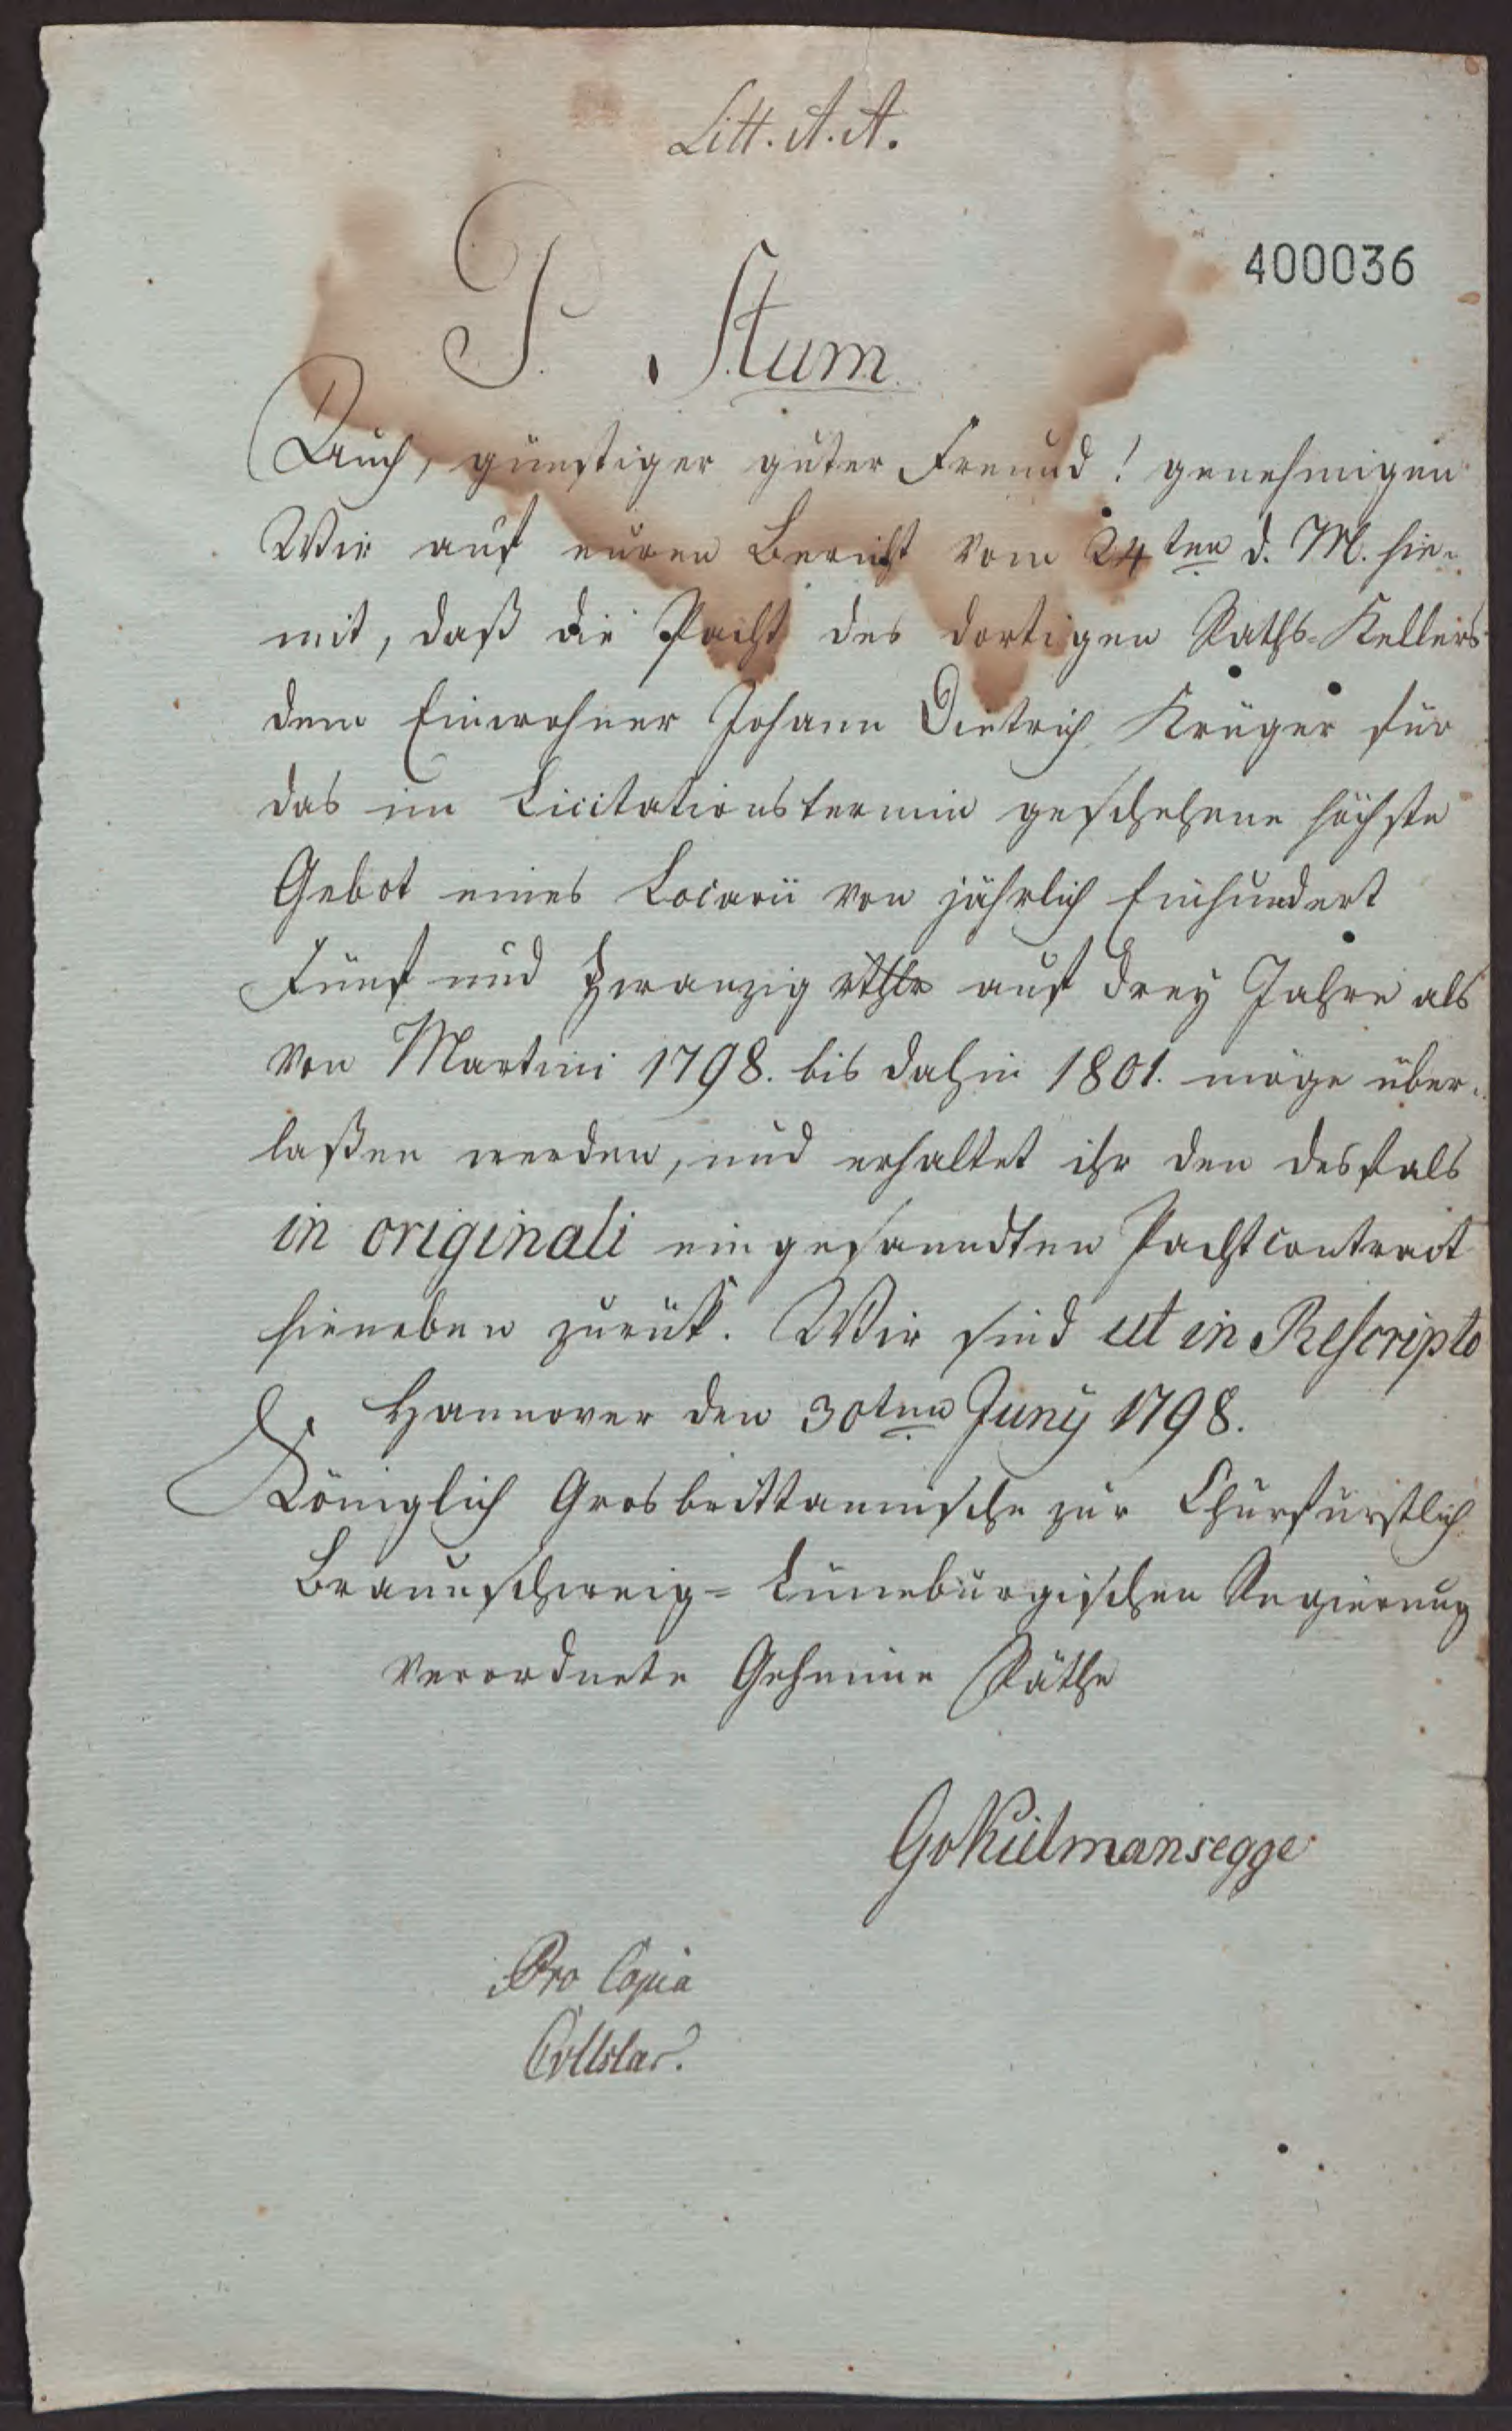 Litt. A. A.
400036
P. Stum
Auch, günstiger guter Freund! genehmigen
Wir auf euren Bericht vom 24ten d. M. hie-
mit, daß die Pacht des dortigen Raths-Kellers
dem Einwohner Johann Dietrich Krüger für
das im Licitationstermin geschehene höchste
Gebot eines Locarii von jährlich Einhundert
Fünf und Zwanzig rthlr auf drey Jahre als
von Martini 1798. bis dahin 1801. möge über-
laßen werden, und erhaltet ihr den desfals
in originali eingesanndten Pachtcontract
hieneben zurük. Wir sind ut in Rescripto
Hannover den 30ten Juny 1798.
Königlich Grosbrittannische zur Churfürstlich
Braunschweig-Lüneburgischen Regierung
verordnete Geheime Räthe
GvKielmansegge
Pro Copia